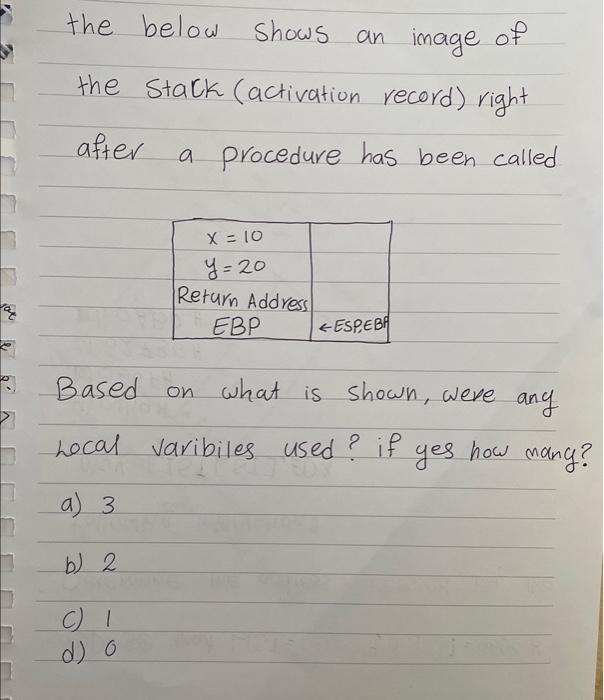 the below shows an image of
the Stack (activation record) right
after a procedure has been called
x = 10
y = 20
Return Address
EBP ←ESP,EBP
Based on what is shown, were any
Local varibiles used? if yes how many?
a) 3
b) 2
c) 1
d) 0